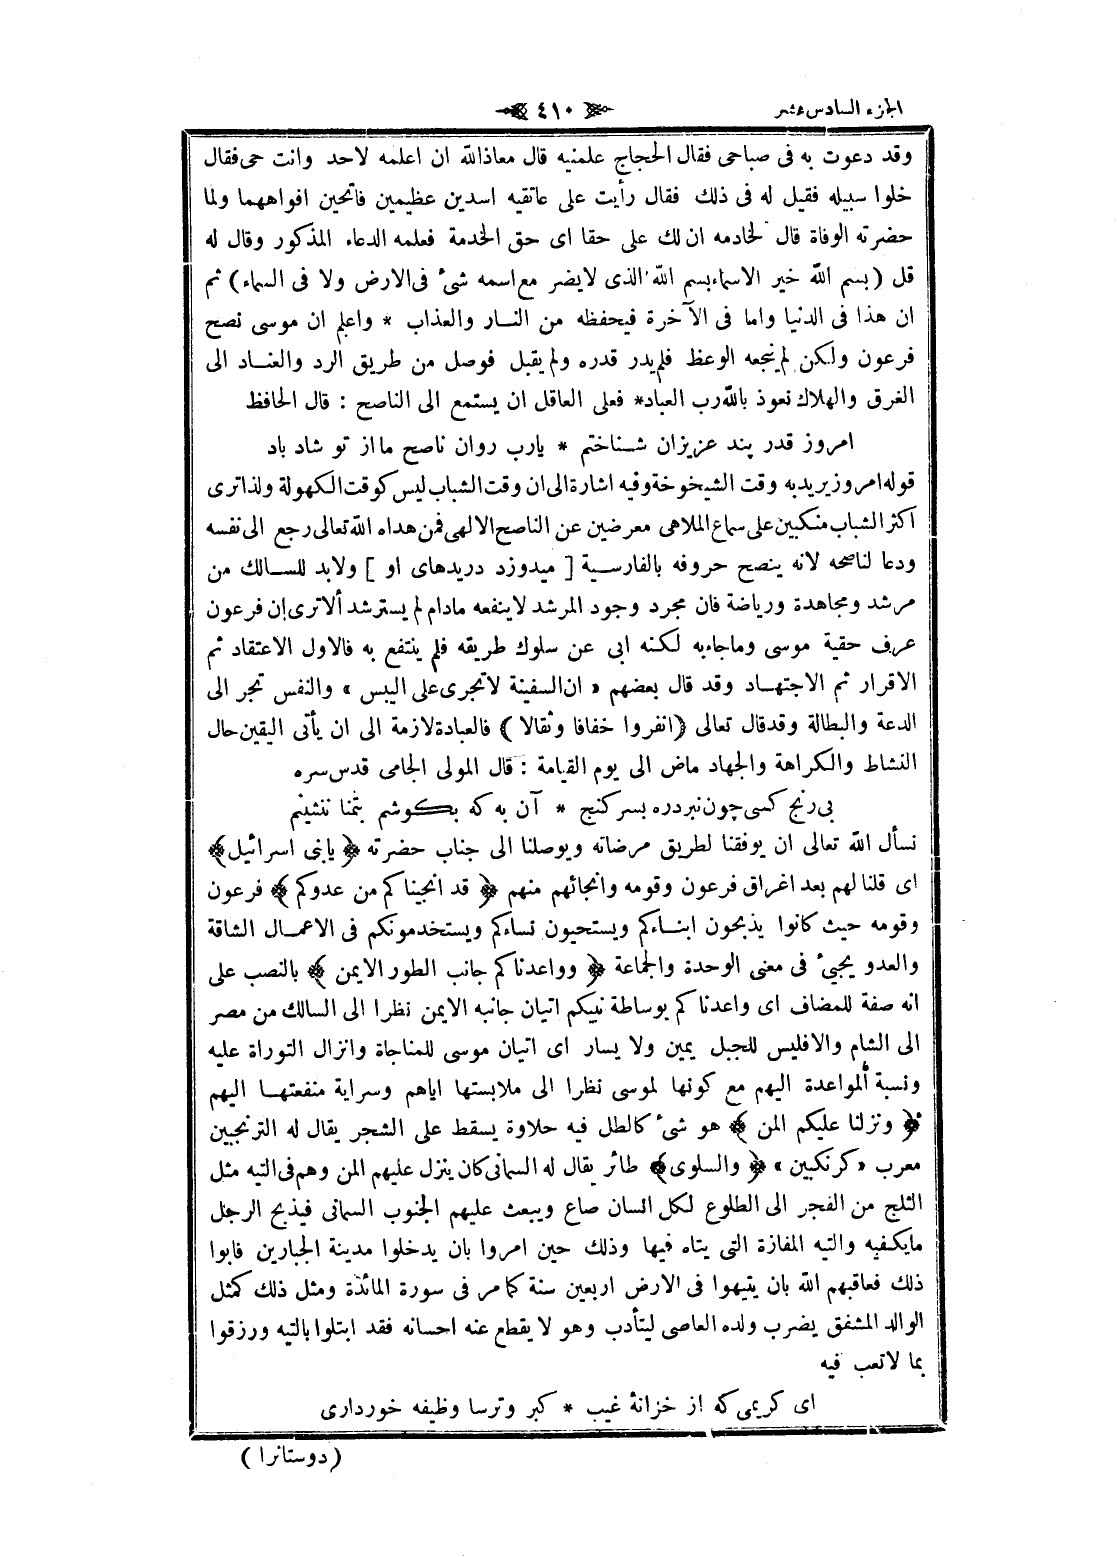 الجزء السادس عشر
٤١٠
وقد دعوت به فى صباحى فقال الحجاج علمنيه قال معاذالله ان اعلمه لاحد وانت حى فقال
خلوا سبيله فقيل له فى ذلك فقال رأيت على عاتقيه اسدين عظيمين فاتحين افواههما ولما
حضرته الوفاة قال لخادمه ان لك على حقا اى حق الخدمة فعلمه الدعاء المذكور وقال له
قل (بسم الله خير الاسماء بسم الله الذى لايضر مع اسمه شئ فى الارض ولا فى السماء) ثم
ان هذا فى الدنيا واما فى الآخرة فيحفظه من النار والعذاب * واعلم ان موسى نصح
فرعون ولكن لم ينجعه الوعظ فلم يدر قدره ولم يقبل فوصل من طريق الرد والعناد الى
الغرق والهلاك نعوذ بالله رب العباد* فعلى العاقل ان يستمع الى الناصح : قال الحافظ
امروز قدر پند عزيزان شناختم * يارب روان ناصح ما از تو شاد باد
قوله امروز يريدبه وقت الشيخوخة وفيه اشارة الى ان وقت الشباب ليس كوقت الكهولة ولذا ترى
اكثر الشباب منكبين على سماع الملاهى معرضين عن الناصح الالهى فمن هداه الله تعالى رجع الى نفسه
ودعا لناصحه لانه ينصح حروفه بالفارسية [ ميدوزد دريدهاى او ] ولابد للسالك من
مرشد ومجاهدة ورياضة فان مجرد وجود المرشد لاينفعه مادام لم يسترشد ألا ترى إن فرعون
عرف حقية موسى وماجاءبه لكنه ابى عن سلوك طريقه فلم ينتفع به فالاول الاعتقاد ثم
الاقرار ثم الاجتهاد وقد قال بعضهم « ان السفينة لاتجرى على اليبس » والنفس تجر الى
الدعة والبطالة وقدقال تعالى (انفروا خفافا وثقالا) فالعبادة لازمة الى ان يأتى اليقين حال
النشاط والكراهة والجهاد ماض الى يوم القيامة : قال المولى الجامى قدس سره
بى رنج كسى چون نبرد ره بسر كنج * آن به كه بكوشم بتمنا ننشينم
نسأل الله تعالى ان يوفقنا لطريق مرضاته ويوصلنا الى جناب حضرته ﴿ يابنى اسرائيل ﴾
اى قلنا لهم بعد اغراق فرعون وقومه وانجائهم منهم ﴿ قد انجيناكم من عدوكم ﴾ فرعون
وقومه حيث كانوا يذبحون ابناءكم ويستحيون نساءكم ويستخدمونكم فى الاعمال الشاقة
والعدو يجيئ فى معنى الوحدة والجماعة ﴿ وواعدناكم جانب الطور الايمن ﴾ بالنصب على
انه صفة للمضاف اى واعدناكم بوساطة نبيكم اتيان جانبه الايمن نظرا الى السالك من مصر
الى الشام والافليس للجبل يمين ولا يسار اى اتيان موسى للمناجاة وانزال التوراة عليه
ونسبة المواعدة اليهم مع كونها لموسى نظرا الى ملابستها اياهم وسراية منفعتها اليهم
﴿ ونزلنا عليكم المن ﴾ هو شئ كالطل فيه حلاوة يسقط على الشجر يقال له الترنجبين
معرب «كرنكبين» ﴿ والسلوى ﴾ طائر يقال له السمانى كان ينزل عليهم المن وهم فى التيه مثل
الثلج من الفجر الى الطلوع لكل انسان صاع ويبعث عليهم الجنوب السمانى فيذبح الرجل
مايكفيه والتيه المفازة التى يتاه فيها وذلك حين امروا بان يدخلوا مدينة الجبارين فابوا
ذلك فعاقبهم الله بان يتيهوا فى الارض اربعين سنة كما مر فى سورة المائدة ومثل ذلك كمثل
الوالد المشفق يضرب ولده العاصى ليتأدب وهو لا يقطع عنه احسانه فقد ابتلوا بالتيه ورزقوا
بما لاتعب فيه
اى كريمى كه از خزانۀ غيب * كبر وترسا وظيفه خوردارى
(دوستانرا)